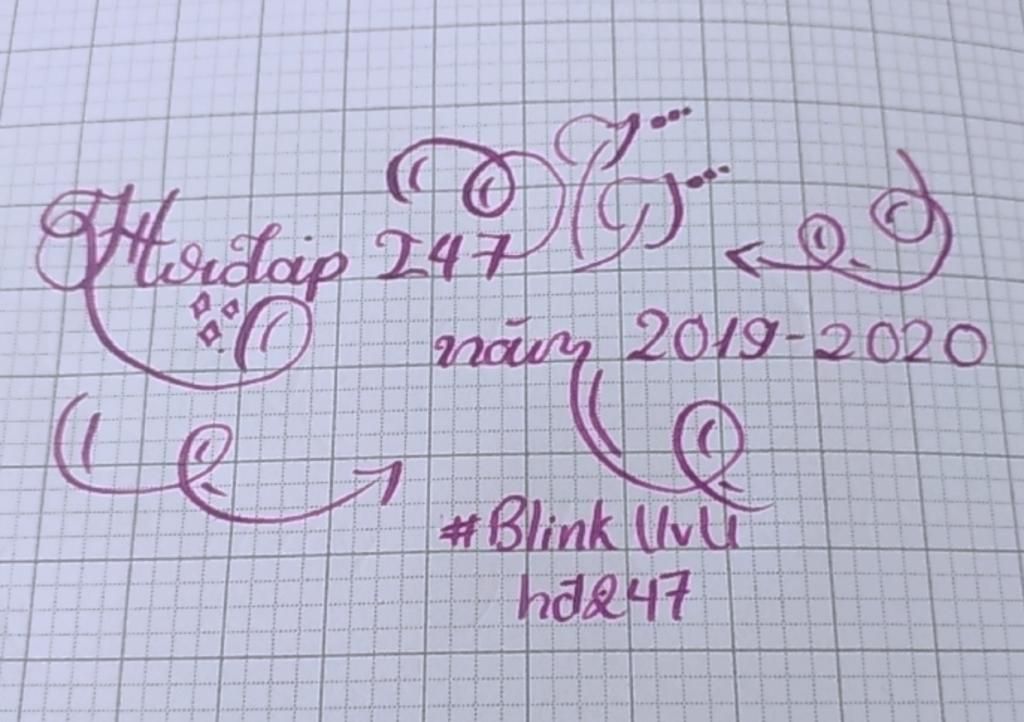 Hoidap 247
năm 2019-2020
#Blink UvU
hd247